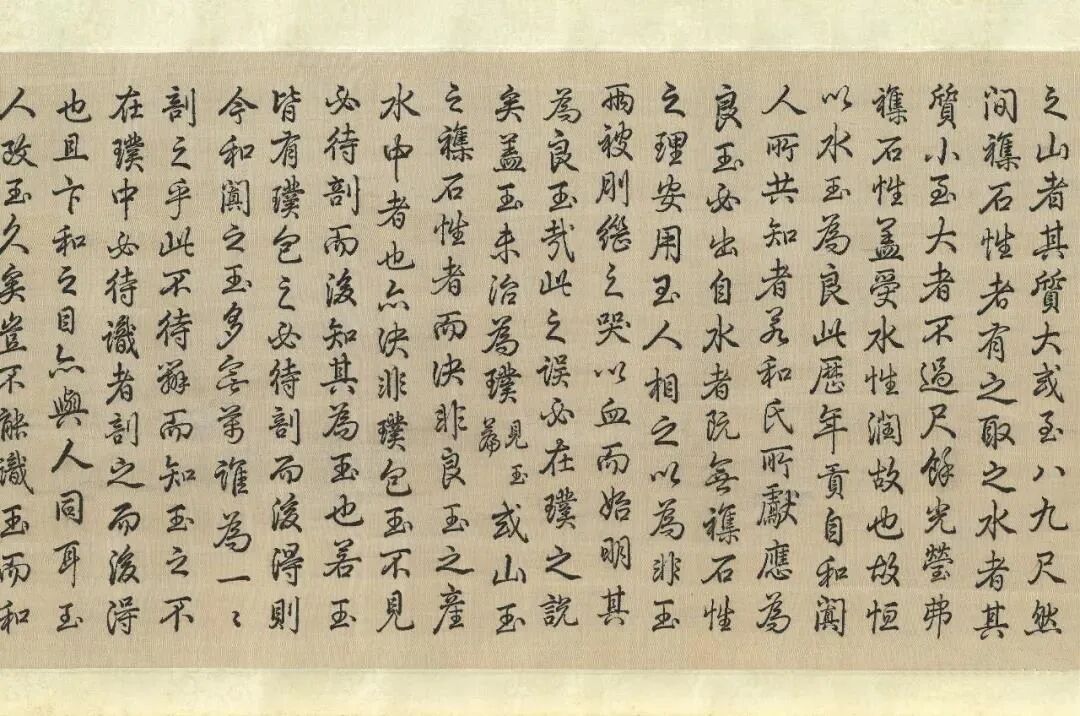 之山者其質大或至八九尺然
間襍石性者有之取之水者其
質小至大者不過尺餘光瑩弗
襍石性蓋受水性潤故也故恒
以水玉為良此歷年貢自和闐
人所共知者若和氏所獻應為
良玉必出自水者既無襍石性
之理安用玉人相之以為非玉
兩被刖繼之哭以血而始明其
為良玉哉此之誤必在璞之說
矣蓋玉未治為璞見玉篇或山玉
之襍石性者而決非良玉之産
水中者也亦決非璞包玉不見
必待剖而後知其為玉也若玉
皆有璞包之必待剖而後得則
今和闐之玉多寧萬誰為一〻
剖之乎此不待辯而知玉之不
在璞中必待識者剖之而後得
也且卞和之目亦與人同耳玉
人攻玉久矣豈不能識玉而和